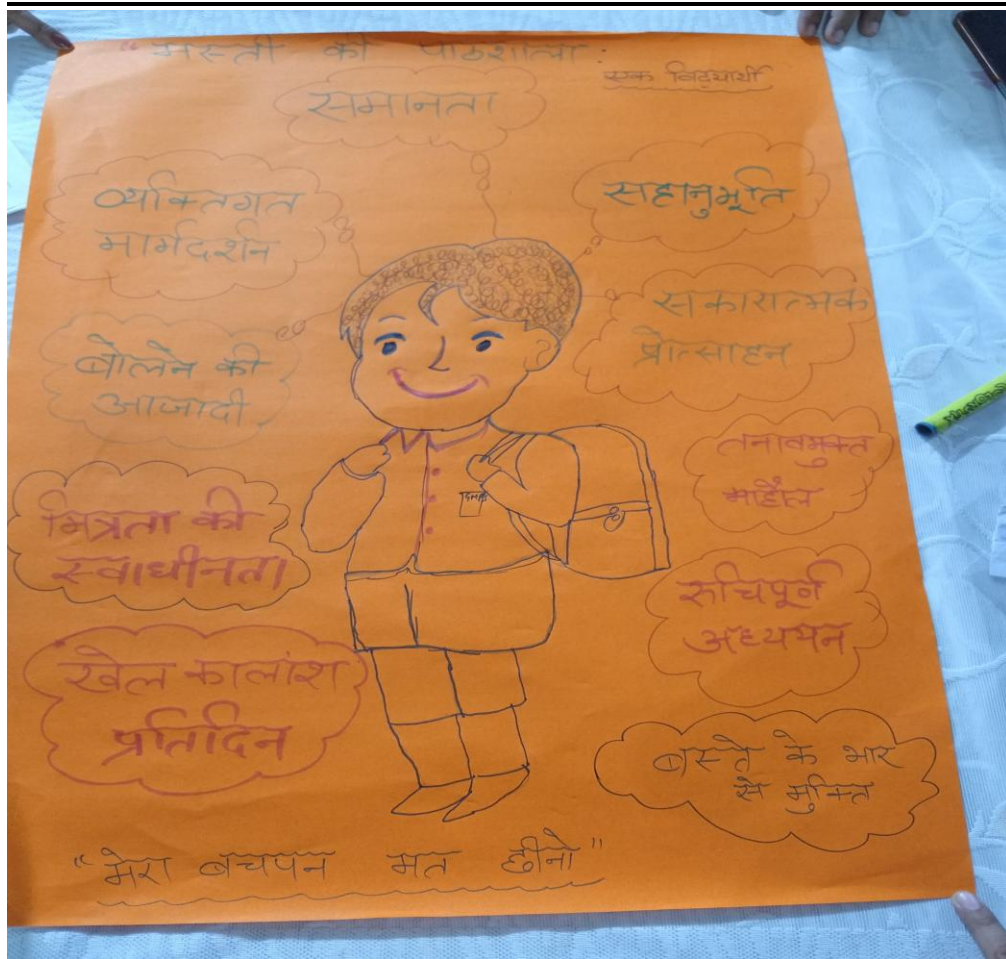 "मस्ती की पाठशाला :
एक विद्यार्थी
समानता
व्यक्तिगत
मार्गदर्शन
सहानुभूति
सकारात्मक
प्रोत्साहन
बोलने की
आजादी
तनावमुक्त
माहौल
मित्रता की
स्वाधीनता
रुचिपूर्ण
अध्ययन
खेल कालांश
प्रतिदिन
बस्ते के भार
से मुक्ति
"मेरा बचपन मत छीनो"